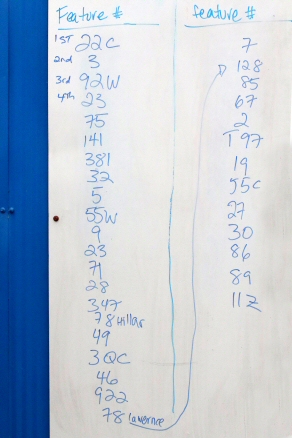 Feature #
1ST 22C
2nd 3
3rd 92W
4th 23
75
141
381
32
5
55W
9
23
71
28
347
78 Hillar
49
3QC
46
922
78 lawernce
feature #
7
128
85
67
2
T 97
19
55C
27
30
86
89
11Z